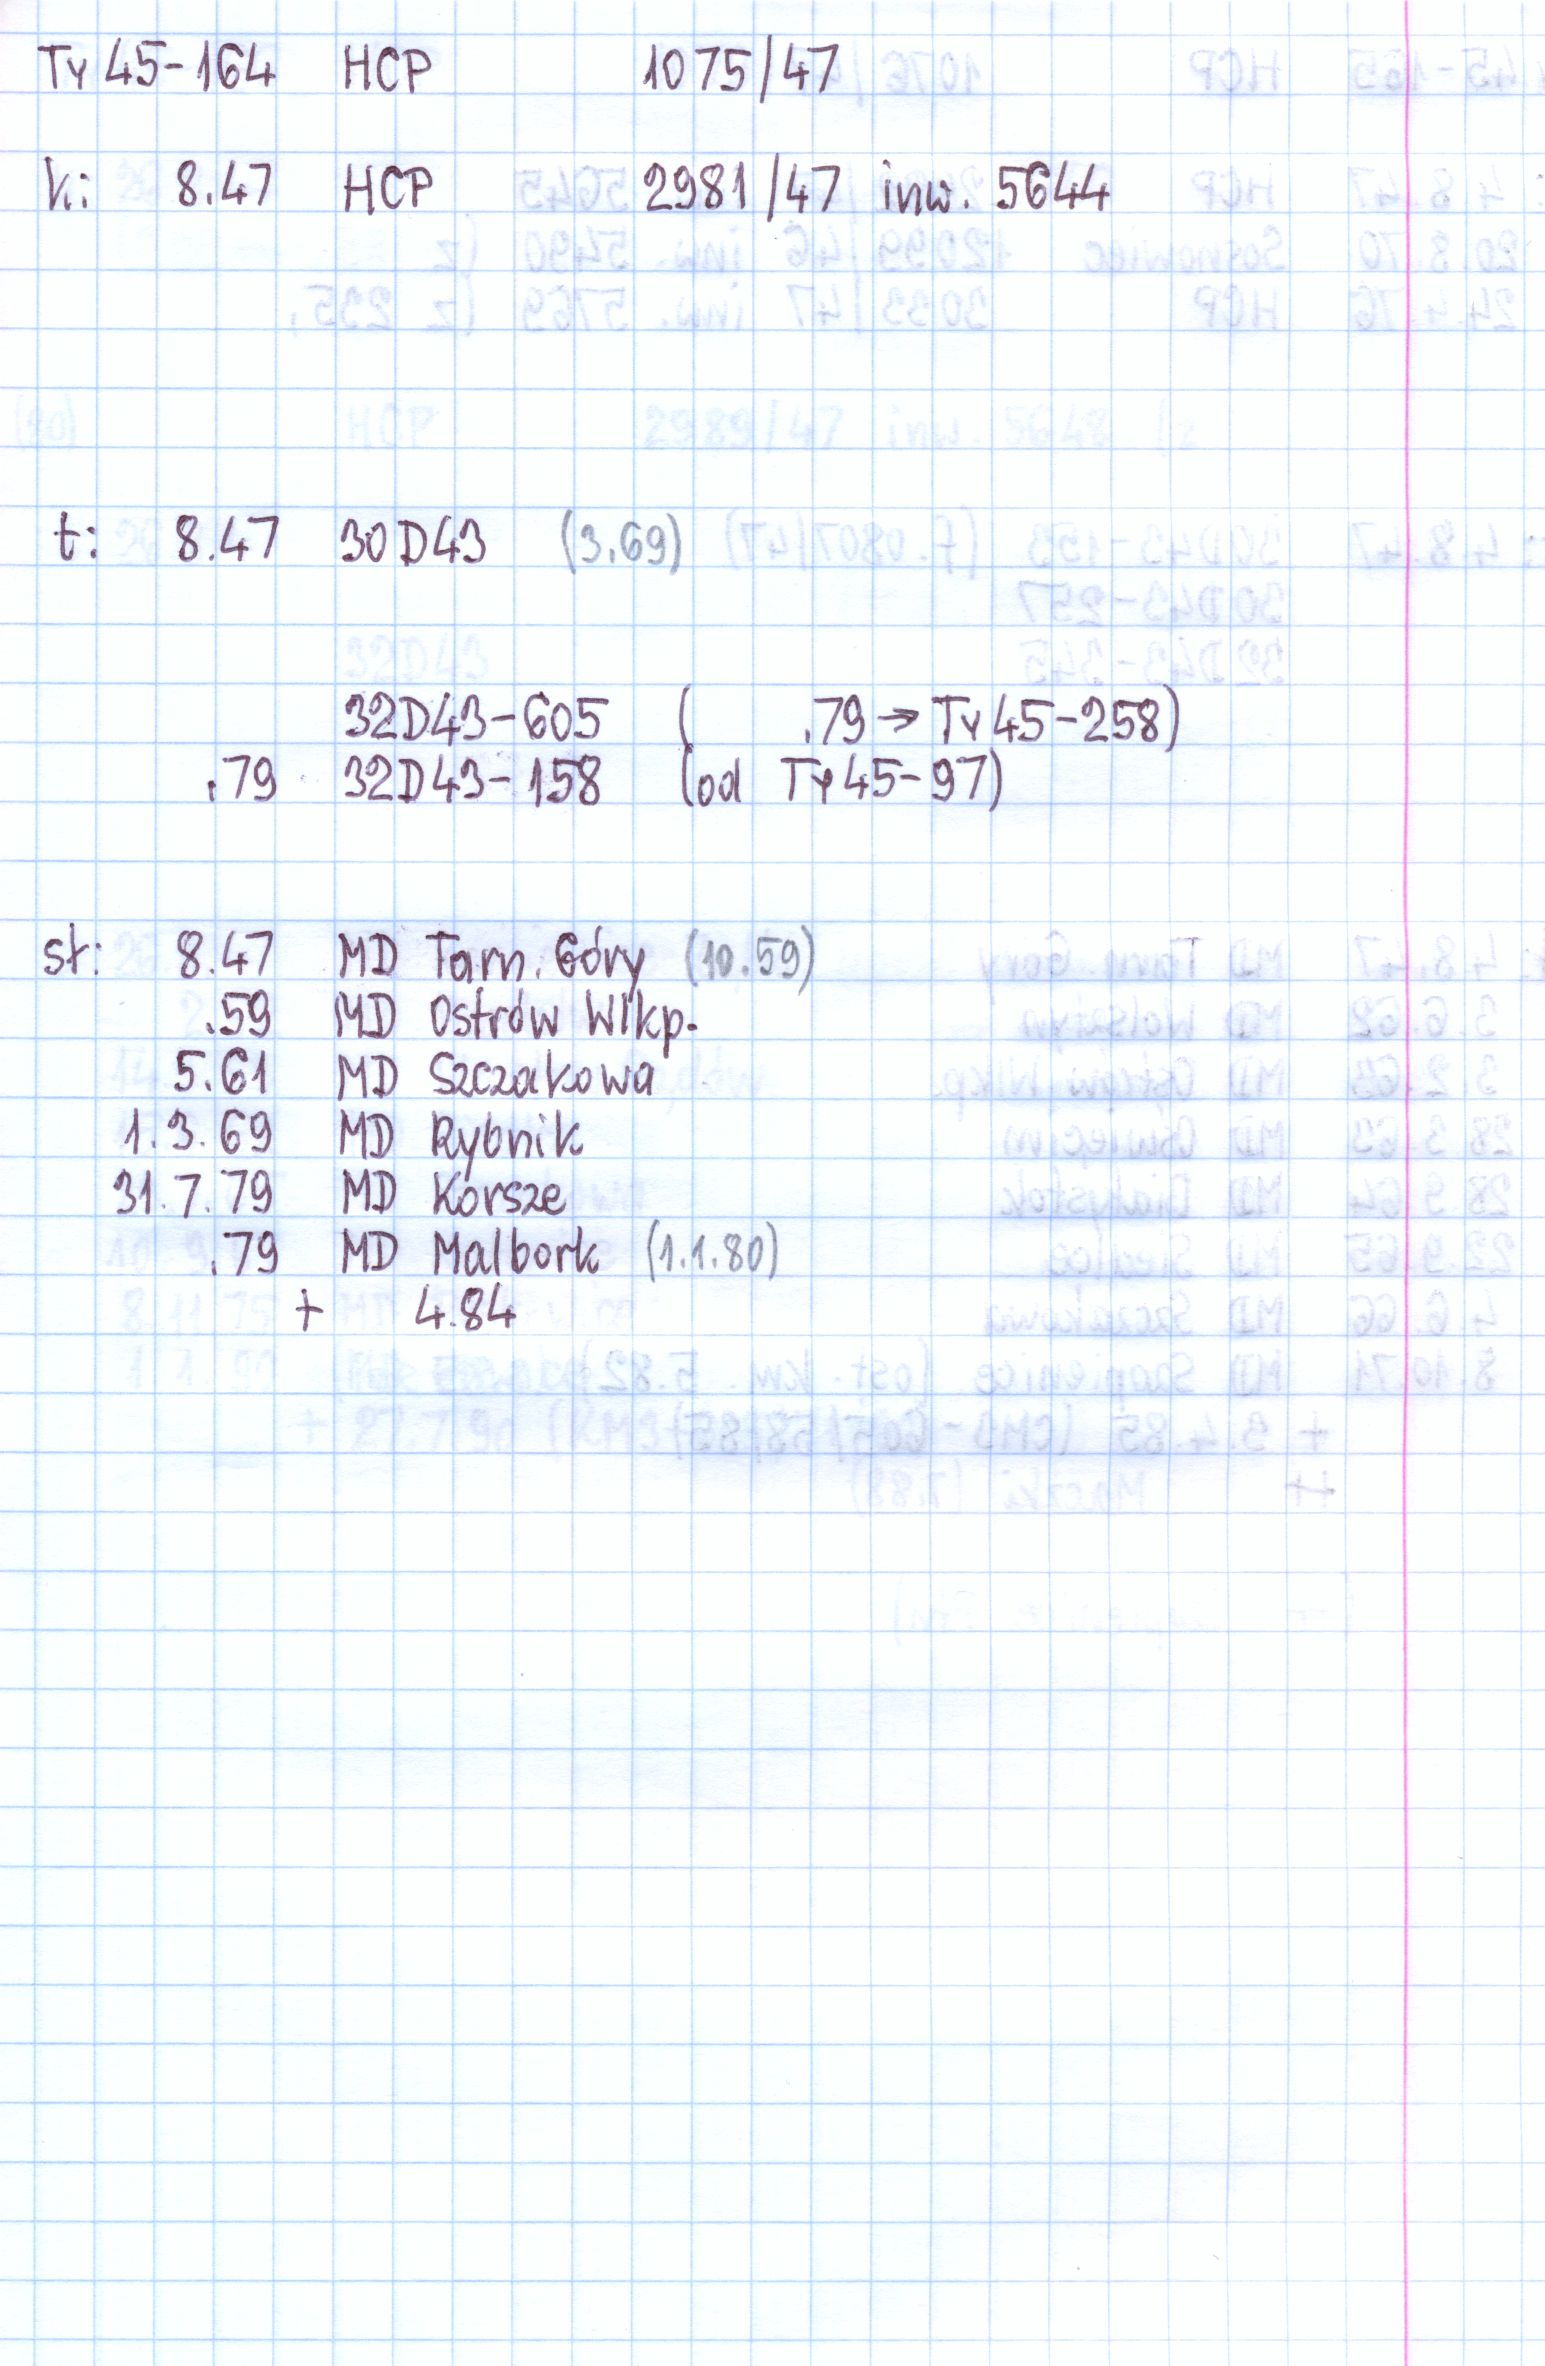 Ty45-164 HCP 1075/47
k: 8.47 HCP 2981/47 inw. 5644
t: 8.47 30D43 (3.69)
32D43-605 ( .79 → Ty45-258)
.79 32D43-158 (od Ty45-97)
st: 8.47 MD Tarn. Góry (10.59)
.59 MD Ostrów Wlkp.
5.61 MD Szczakowa
1.3.69 MD Rybnik
31.7.79 MD Korsze
.79 MD Malbork (1.1.80)
+ 4.84